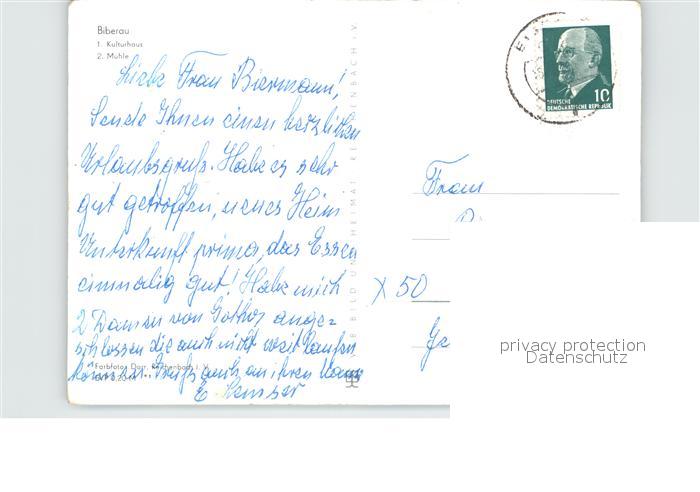 Biberau
1. Kulturhaus
2. Mühle
Liebe Frau Biermann!
Sende Ihnen einen herzlichen
Urlaubsgruß. Habe es sehr
gut getroffen, neues Heim
Unterkunft prima, das Essen
einmalig gut! Habe mich
2 Damen von Gotha ange=
schlossen die auch nicht weit laufen
können. Gruß auch an ihren Mann
E.
Farbfotos: Darr, Reichenbach i. V.
BILD UND HEIMAT REICHENBACH i. V.
10
DEUTSCHE
DEMOKRATISCHE REPUBLIK
Frau
X 50
privacy protection
Datenschutz